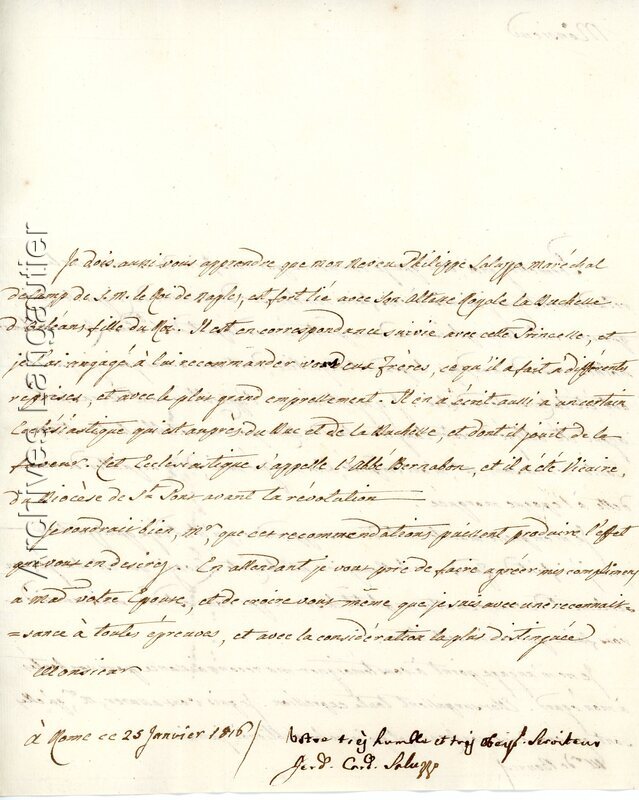 Je dois aussi vous apprendre que mon Neveu Philippe Saluzzo maréchal
de camp de S. M. le Roi de Naples, est fort lié avec Son Altesse Royale la Duchesse
d'Orleans fille du Roi. Il est en correspondance suivie avec cette Princesse, et
je l'ai engagé à lui recommander vos deux frères, ce qu'il a fait à différentes
reprises, et avec le plus grand empressement. Il en a écrit aussi à un certain
Ecclésiastique qui est auprès du Duc et de la Duchesse, et dont il jouit de la
faveur. Cet Ecclésiastique s'appelle l'Abbé Bernabon, et il a été Vicaire
du Diocèse de St. Pons avant la révolution
Je voudrais bien, Mr, que ces recommendations puissent produire l'effet
que vous en desirez. En attendant je vous prie de faire agréer mes complimens
à Mad votre Epouse, et de croire vous même que je suis avec une reconnais-
=sance à toutes épreuves, et avec la considération la plus distinguée
Monsieur
à Rome ce 25 Janvier 1816
Votre très humble et très obeiss. Serviteur
Ferd. Card. Saluzzo
Archives Langautier